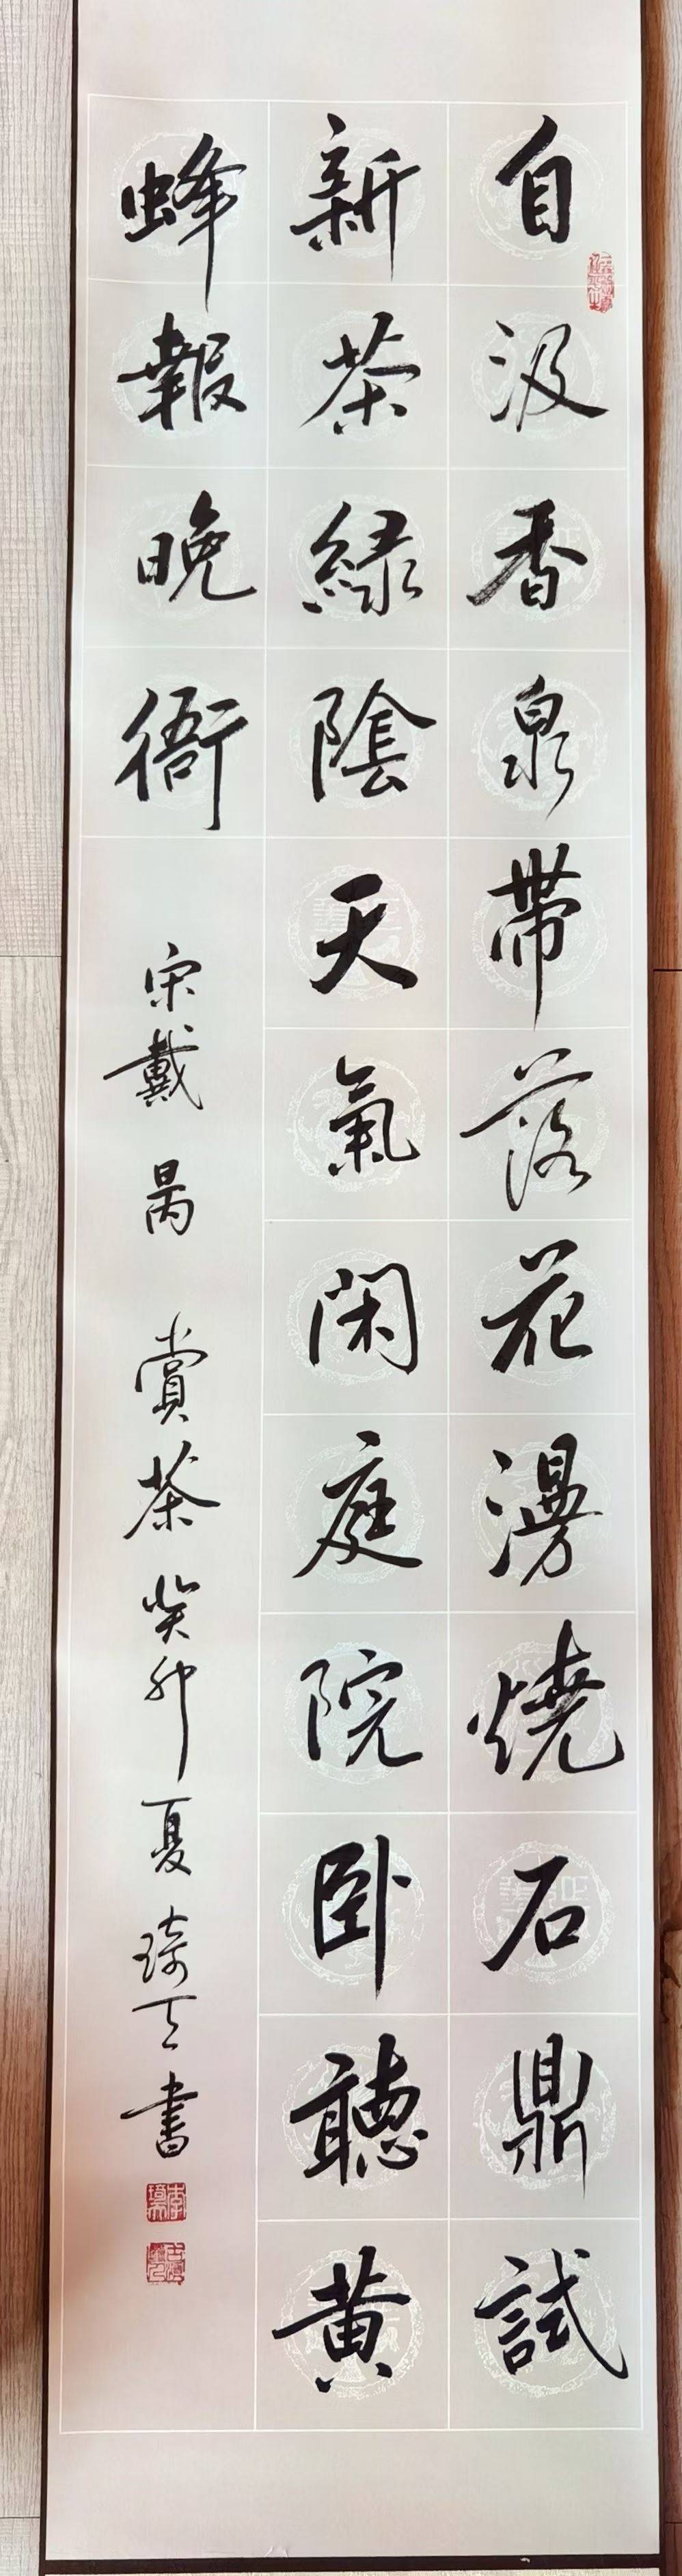 自汲香泉帶落花漫燒石鼎試
新茶綠陰天氣閑庭院卧聽黄
蜂報晚衙
宋戴昺 賞茶 癸卯夏 琦 書